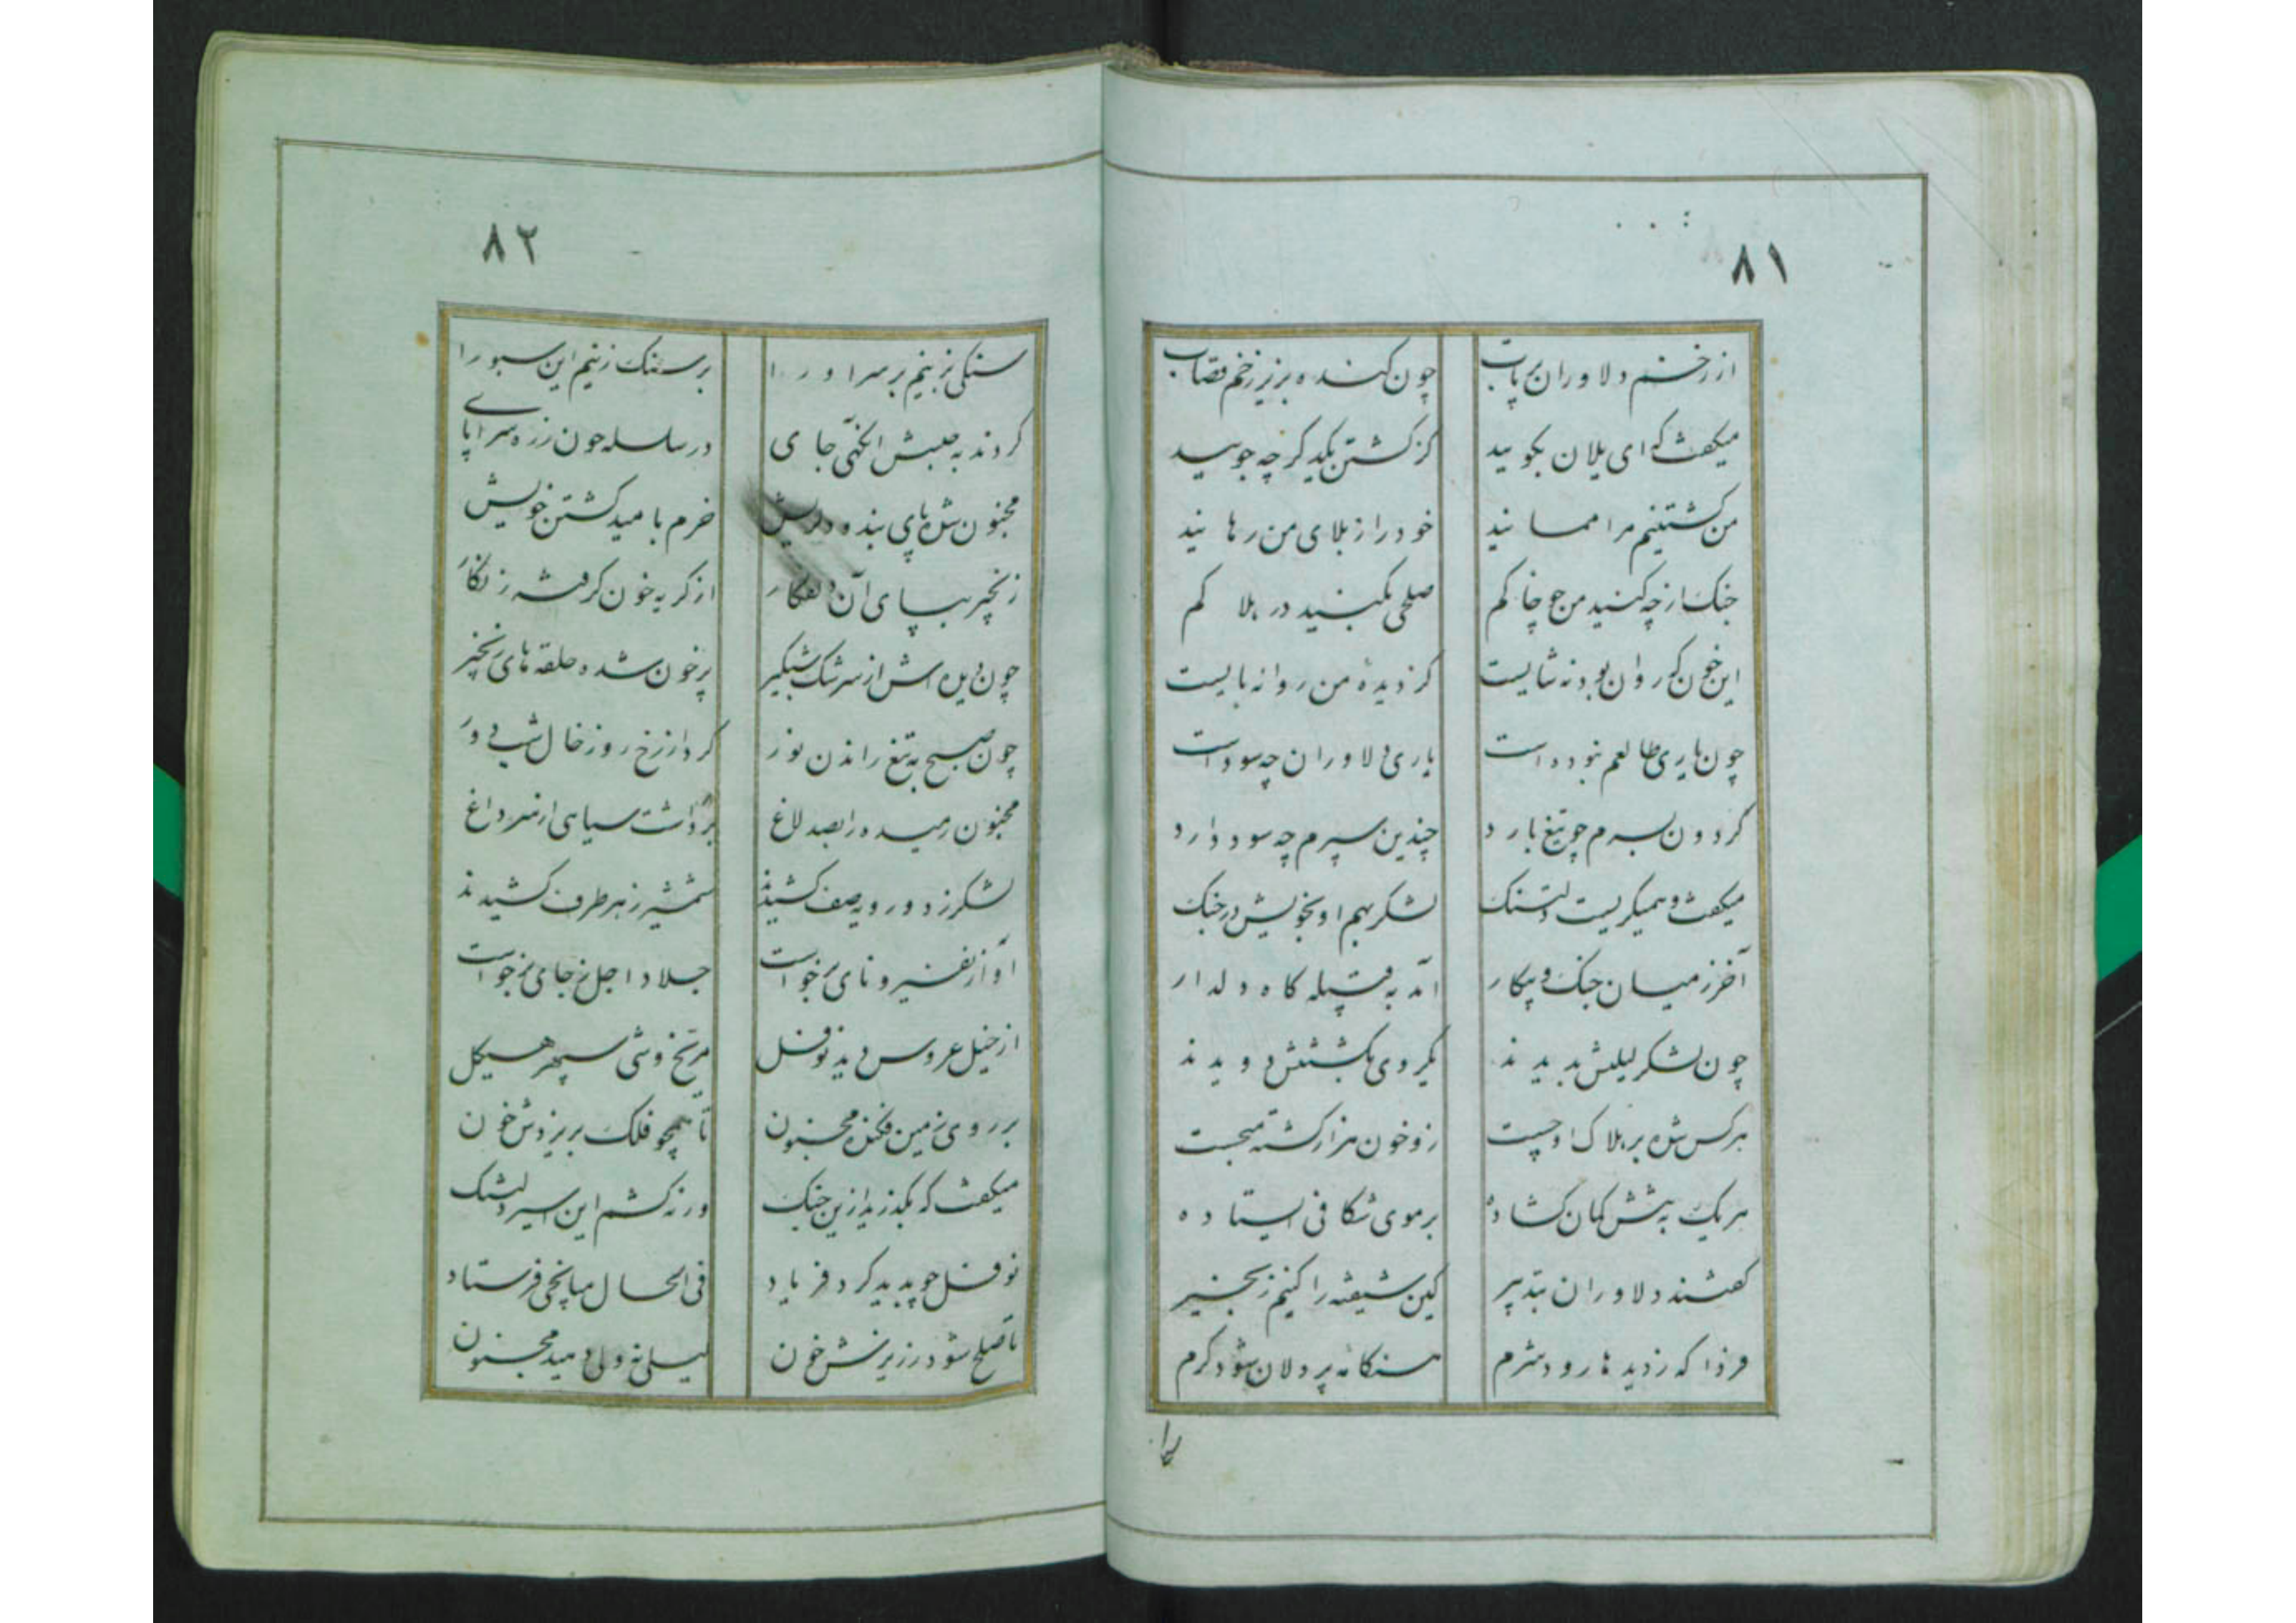 ۸۱
از زخم دلاوران پرتاب چون کنده بزیر زخم قصاب
میکفت که ای یلان بکویید کز کشتن یکدکر چه جویید
من کشتنیم مرا ممانید خود را ز بلای من رهانید
جنک از چه کنید من چو خاکم صلحی بکنید در هلاکم
این خون که روان بود نه شایست کز دیده من روانه بایست
چون یاری طالعم نبوده است یاری دلاوران چه سود است
کردون بسرم چو تیغ بارد چندین سپرم چه سود دارد
میکفت و همیکریست دلتنک لشکر بهم او بخویش در جنک
آخر ز میان جنک و پیکار آمد به قبیله کاه دلدار
چون لشکر لیلیش بدیدند یکروی بکشتنش دویدند
هر کس شده بر هلاک او چست زو خون هزار کشته میجست
هر یک به پیشش کمان کشاده بر موی شکافی ایستاده
کفتند دلاوران بتدبیر کین شیفته را کنیم زنجیر
فردا که ز دیدها رود شرم هنکامه پردلان شود کرم
۸۲
سنکی بزنیم بر سر او را بر سنک زنیم این سبو را
کردند به حبسش آنکهی جای در سلسله چون زره سراپای
مجنون شده پای بند و دلریش خرم بامید کشتن خویش
زنجیر بپای آن دلفکار از کریه خون کرفته زنکار
چون دیده اش از سرشک شبکیر پر خون شده حلقه های زنجیر
چون صبح به تیغ راندن نور کرد از رخ روز خال شب دور
مجنون رمیده را بصد لاغ برداشت سیاهی از سر داغ
لشکر ز دو رویه صف کشیدند شمشیر ز هر طرف کشیدند
آواز نفیر و نای برخواست جلاد اجل ز جای برخواست
از خیل عروس دید نوفل مریخ وشی سپهر هیکل
بر روی زمین فکنده مجنون تا همچو فلک بریزدش خون
میکفت که بکذرید ازین جنک ورنه کشم این اسیر دلتنک
نوفل چو بدید کرد فریاد فی الحال میانجی فرستاد
تا صلح شود ز ریزش خون لیلی نه ولی دهید مجنون